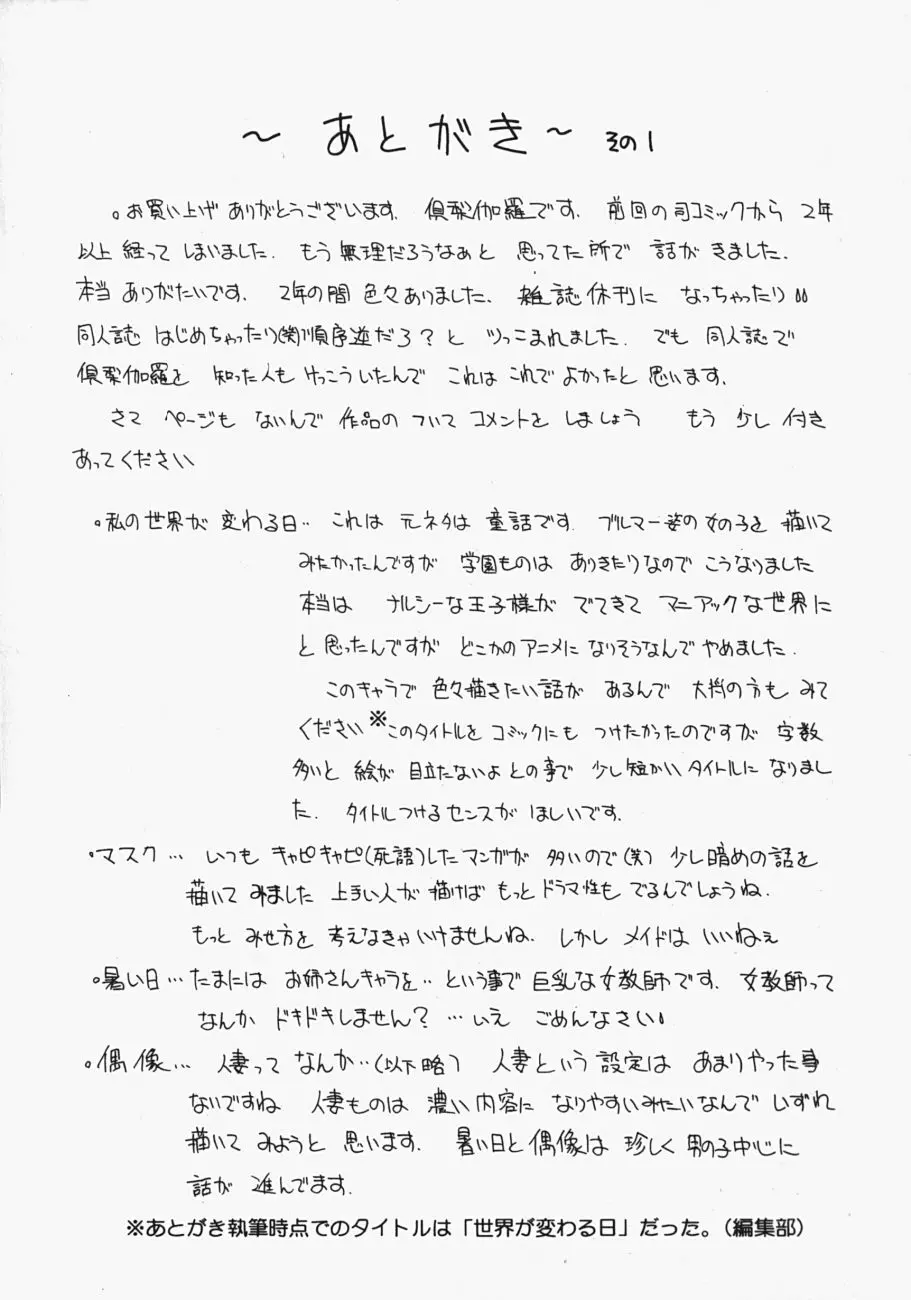 ～ あとがき～ その1
。お買い上げ ありがとうございます. 倶梨伽羅です. 前回の司コミックから 2年
以上 経って しまいました. もう無理だろうなぁと 思ってた所で 話が きました.
本当 ありがたいです. 2年の間 色々ありました. 雑誌休刊に なっちゃったり
同人誌 はじめちゃったり(笑)順序逆だろ?と ツッこまれました. でも 同人誌で
倶梨伽羅を 知った人も けっこういたんで これは これで よかったと 思います.
さて ページも ないんで 作品の ついて コメントを しましょう もう 少し 付き
あってください
。私の世界が 変わる日‥ これは 元ネタは 童話です. ブルマー姿の女の子を 描いて
みたかったんですが 学園ものは ありきたりなので こうなりました
本当は ナルシーな王子様が でてきて マニアックな世界に
と 思ったんですが どこかの アニメに なりそうなんで やめました.
このキャラで 色々描きたい話が あるんで 大将の方も みて
ください※このタイトルを コミックにも つけたかったのですが 字数
多いと 絵が 目立たないよ との事で 少し短かいタイトルに なりまし
た. タイトルつけるセンスが ほしいです.
・マスク… いつも キャピキャピ(死語)したマンガが 多いので(笑) 少し暗めの話を
描いて みました 上手い人が 描けば もっと ドラマ性も でるんでしょうね.
もっと みせ方を 考えなきゃ いけませんね. しかし メイドは いいねぇ
。暑い日… たまには お姉さんキャラを‥ という事で 巨乳な女教師です. 女教師って
なんか ドキドキしません? …いえ ごめんなさい
。偶像… 人妻って なんか‥(以下略) 人妻という 設定は あまりやった事
ないですね 人妻ものは 濃い内容に なりやすいみたいなんで いずれ
描いて みようと 思います. 暑い日と偶像は 珍しく 男の子中心に
話が 進んでます.
※あとがき執筆時点でのタイトルは「世界が変わる日」だった。（編集部）